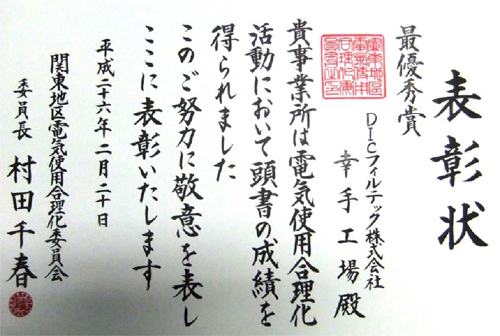 表彰状
最優秀賞
DICフィルテック株式会社
幸手工場殿
貴事業所は電気使用合理化
活動において頭書の成績を
得られました
このご努力に敬意を表し
ここに表彰いたします
平成二十六年二月二十日
関東地区電気使用合理化委員会
委員長 村田千春